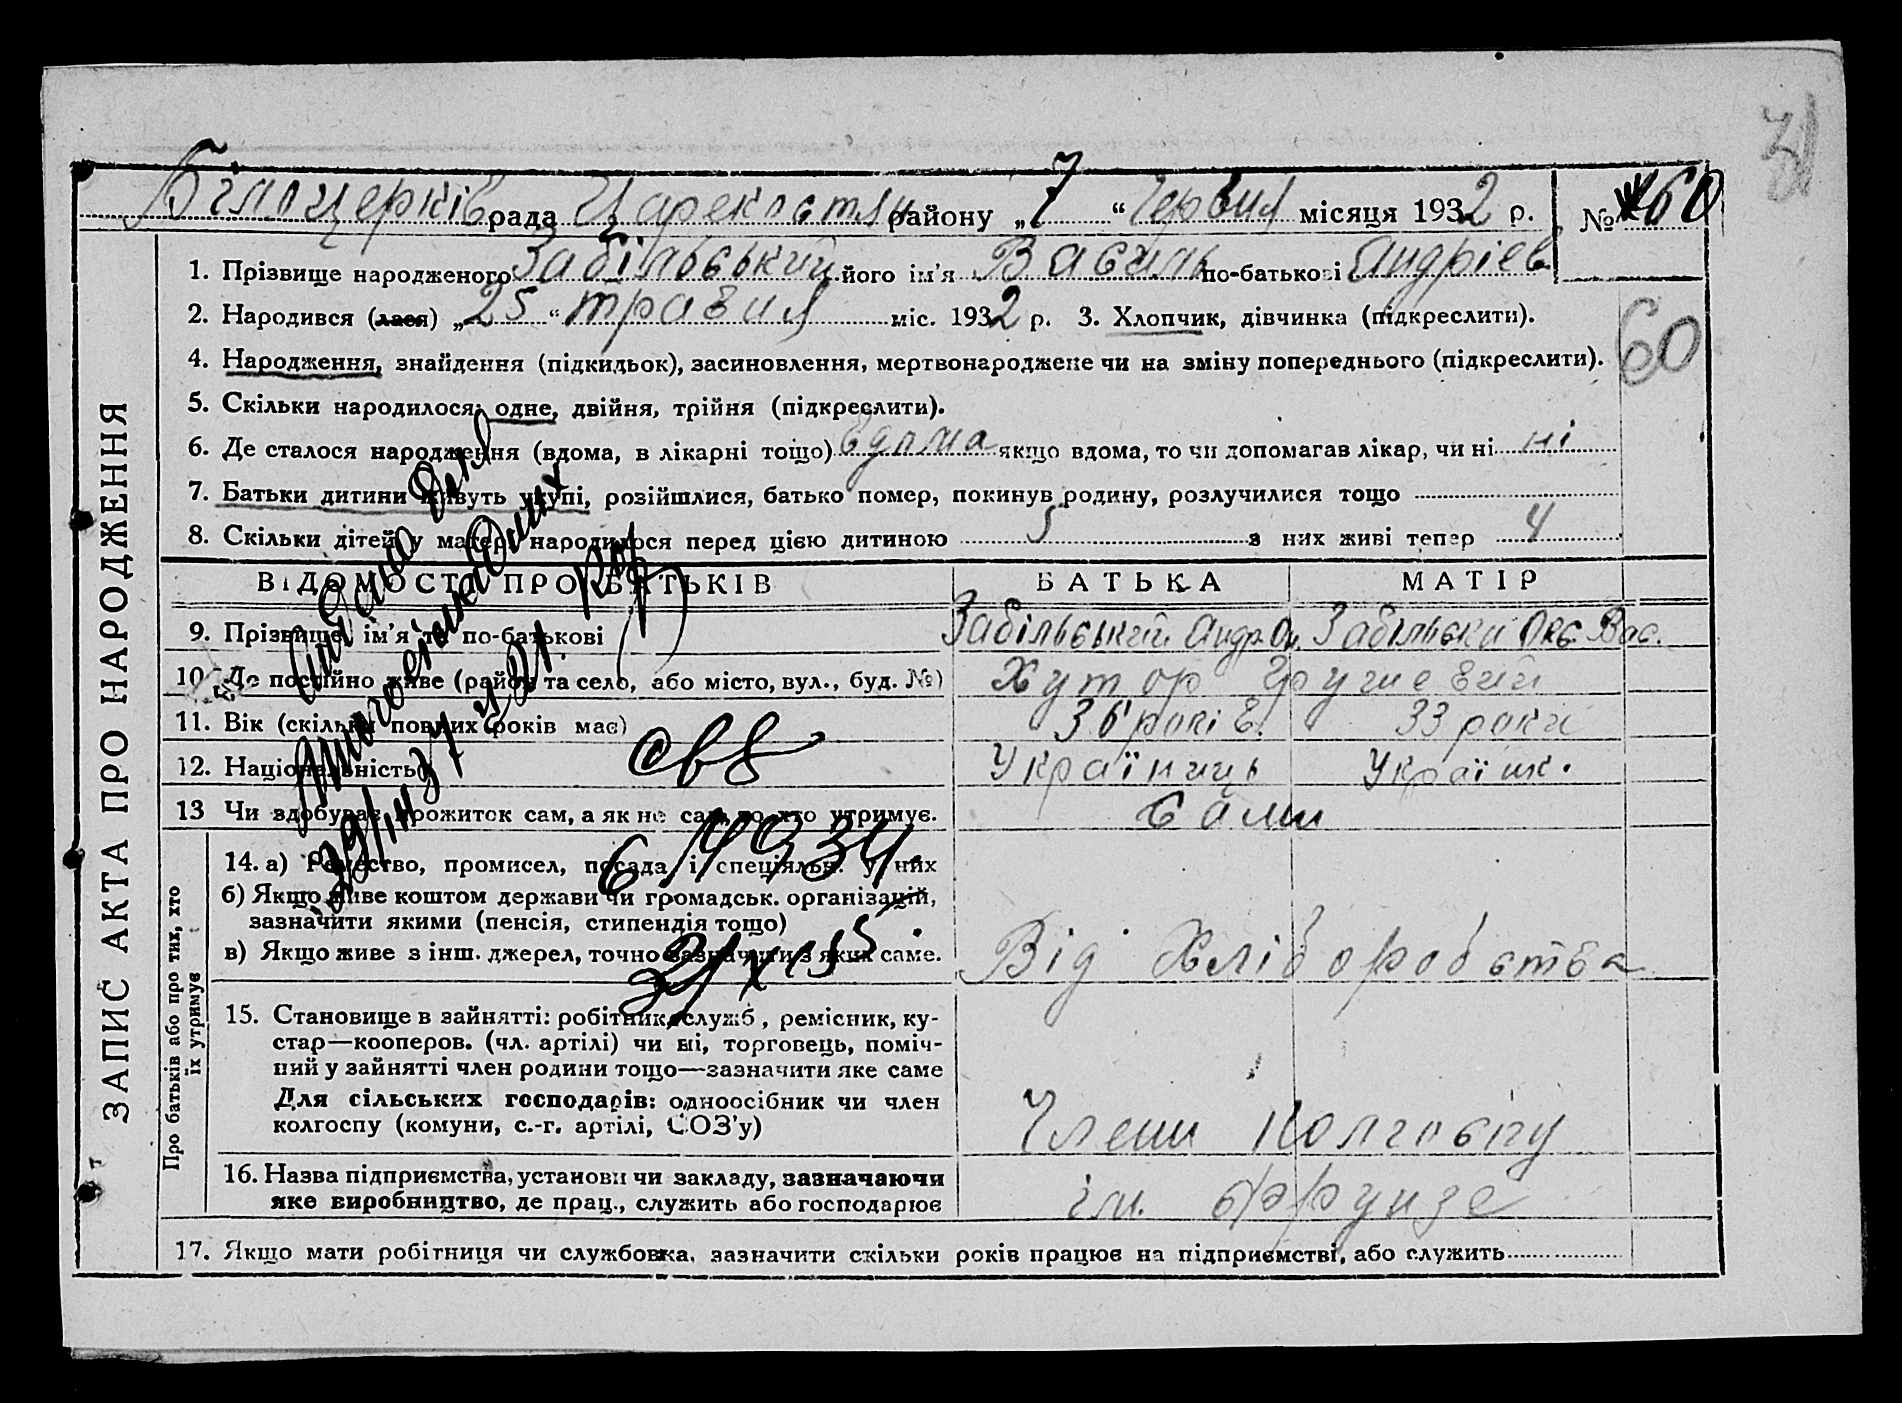 31
Білоцерків рада Царекостян району „7“ Червня місяця 1932 р. № 60
1. Прізвище народженого Забільський його ім’я Василь по-батькові Андрієв
2. Народився (лася) „25“ травня міс. 1932 р. 3. Хлопчик, дівчинка (підкреслити).
60
4. Народження, знайдення (підкидьок), засиновлення, мертвонароджене чи на зміну попереднього (підкреслити).
5. Скільки народилося: одне, двійня, трійня (підкреслити).
6. Де сталося народження (вдома, в лікарні тощо) вдома якщо вдома, то чи допомагав лікар, чи ні ні
7. Батьки дитини живуть укупі, розійшлися, батько помер, покинув родину, розлучилися тощо
8. Скільки дітей у матері народилося перед цією дитиною 5 з них живі тепер 4
ВІДОМОСТІ ПРО БАТЬКІВ БАТЬКА МАТІР
9. Прізвище, ім’я та по-батькові Забільський Андр. Забільськ Окс. Вас.
10. Де постійно живе (район та село, або місто, вул., буд. №) Хутор
11. Вік (скільки повних років має) 36 років 33 роки
12. Національність Українець Україн.
13 Чи здобуває прожиток сам, а як не сам, то хто утримує. Сами
14. а) Ремество, промисел, посада і спеціяльн. у них
б) Якщо живе коштом держави чи громадськ. організацій,
зазначити якими (пенсія, стипендія тощо)
в) Якщо живе з інш. джерел, точно зазначити з яких саме. Від Хліборобства
15. Становище в зайнятті: робітник, служб, ремісник, ку-
стар—кооперов. (чл. артілі) чи ні, торговець, поміч-
ний у зайнятті член родини тощо—зазначити яке саме
Для сільських господарів: одноосібник чи член
колгоспу (комуни, с.-г. артілі, СОЗ’у) Члени Колгоспу
16. Назва підприємства, установи чи закладу, зазначаючи
яке виробництво, де прац., служить або господарює ім. Фрунзе
17. Якщо мати робітниця чи службовка, зазначити скільки років працює на підприємстві, або служить
ЗАПИС АКТА ПРО НАРОДЖЕННЯ
Про батьків або про тих, хто
їх утримує